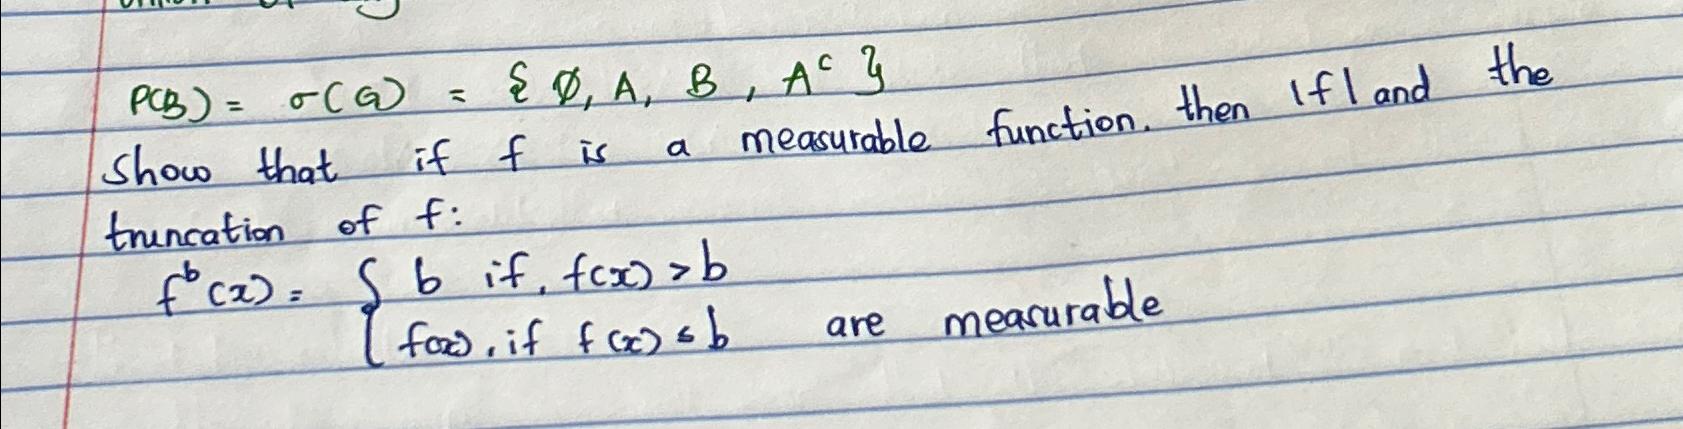 P(B) = σ(G) = { Ø, A, B, Aᶜ }
show that if f is a measurable function. then |f| and the
truncation of f:
fᵇ(x) = { b if, f(x) > b
f(x), if f(x) ≤ b are measurable